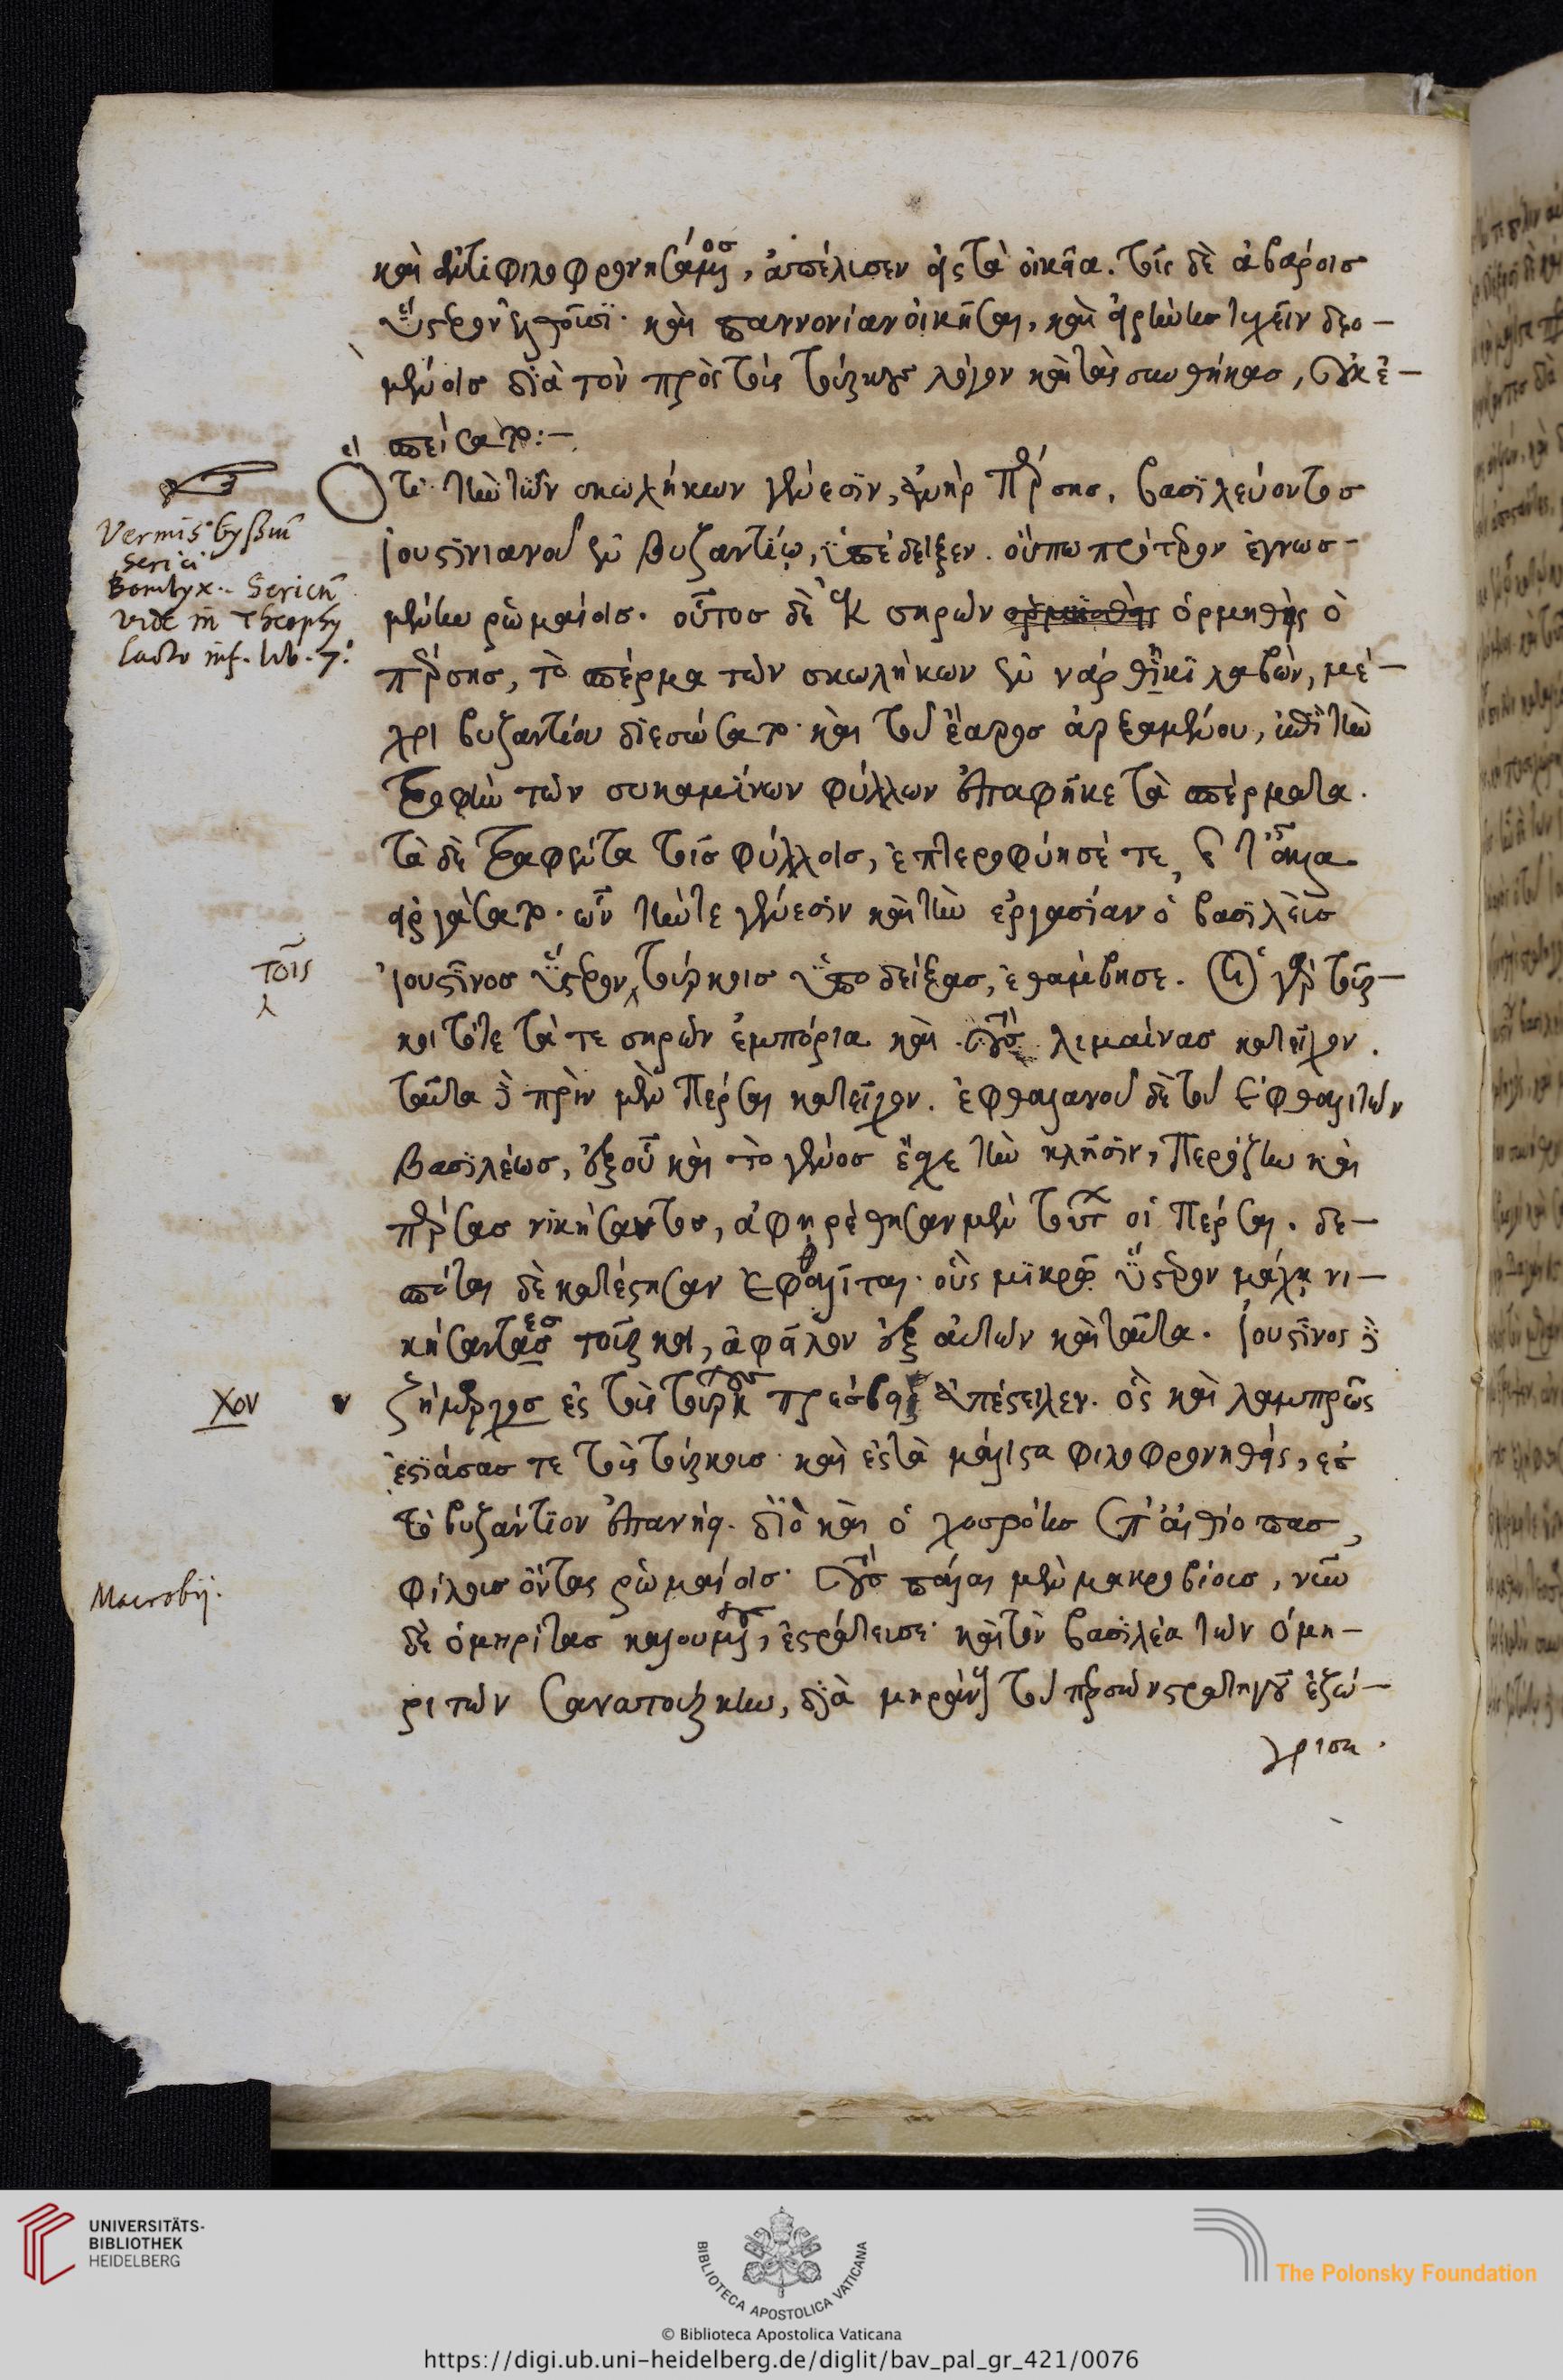 καὶ ἀντιφιλοφρονησάμενος, ἀπέλυσεν εἰς τὰ οἰκεῖα. τοῖς δὲ ἀβάροις
ὕστερον ἐλθοῦσι· καὶ παννονίαν οἰκῆσαι, καὶ εἰρήνης τυχεῖν δεο-
μένοις διὰ τὸν πρὸς τοὺς τούρκους λόγον καὶ τὰς συνθήκας, οὐκ ἐ-
σπείσατο:-
Ὅτι τὴν τῶν σκωλήκων γένεσιν, ἀνὴρ Πέρσης, βασιλεύοντος
Ἰουστινιανοῦ ἐν Βυζαντίῳ, ὑπέδειξεν. οὔπω πρότερον ἐγνωσ-
μένην ῥωμαίοις. οὗτος δὲ ἐκ σηρῶν ὁρμηθεὶς ὁ
πέρσης, τὸ σπέρμα τῶν σκωλήκων ἐν νάρθηκι λαβὼν, μέ-
χρι βυζαντίου διεσώσατο· καὶ τοῦ ἔαρος ἀρξαμένου, ἐπὶ τὴν
τροφὴν τῶν συκαμίνων φύλλων ἐπαφῆκε τὰ σπέρματα.
τὰ δὲ τραφέντα τοῖς φύλλοις, ἐπτεροφύησέ τε, καὶ τἄλλα
εἰργάσατο. ὧν τήντε γένεσιν καὶ τὴν ἐργασίαν ὁ βασιλεὺς
Ἰουστῖνος ὕστερον τούρκοις ὑποδείξας, ἐθάμβησε. Οἱ γὰρ τοῦρ-
κοι τότε τά τε σηρῶν ἐμπόρια καὶ τοὺς λιμαίνας κατεῖχον.
ταῦτα δὲ πρὶν μὲν Πέρσαι κατεῖχον. ἐφθαλανοῦ δὲ τοῦ Ἐφθαλιτῶν
Βασιλέως, ἐξοῦ καὶ τὸ γένος ἔσχε τὴν κλῆσιν, Περόζην καὶ
πέρσας νικήσαντος, ἀφῃρέθησαν μὲν τούτων οἱ Πέρσαι. δε-
σπόται δὲ κατέστησαν Ἐφθαλῖται. οὓς μικρῷ ὕστερον μάχῃ νι-
κήσαντες τοῦρκοι, ἀφεῖλον ἐξ αὐτῶν καὶ ταῦτα. Ἰουστῖνος δὲ
ζήμαρχος ἐς τοὺς τούρκους πρεσβευ ἀπέστειλεν. ὃς καὶ λαμπρῶς
ἑστιάσας τε τοὺς τούρκους· καὶ ἐς τὰ μάλιστα φιλοφρονηθεὶς, ἐς
τὸ βυζάντιον ἐπανῄει. διὸ καὶ ὁ χοσρόης ἐπ' αἰθίοπας,
φίλους ὄντας ῥωμαίοις. τοὺς πάλαι μὲν μακροβίους, νῦν
δὲ ὁμηρίτας καλουμένους, ἐστράτευσε· καὶ τὸν βασιλέα τῶν ὁμη-
ριτῶν Σανατουρκην, διὰ μηράνους τοῦ περσῶν στρατηγοῦ ἐζώ-
γρισε.
Vermis byssinū
Serici
Bombyx.. Sericū
vide in Theophy
lacto inf. lib. 7.
τοῖς
χον
Macrobij.
UNIVERSITÄTS-
BIBLIOTHEK
HEIDELBERG
BIBLIOTECA APOSTOLICA VATICANA
The Polonsky Foundation
© Biblioteca Apostolica Vaticana
https://digi.ub.uni-heidelberg.de/diglit/bav_pal_gr_421/0076